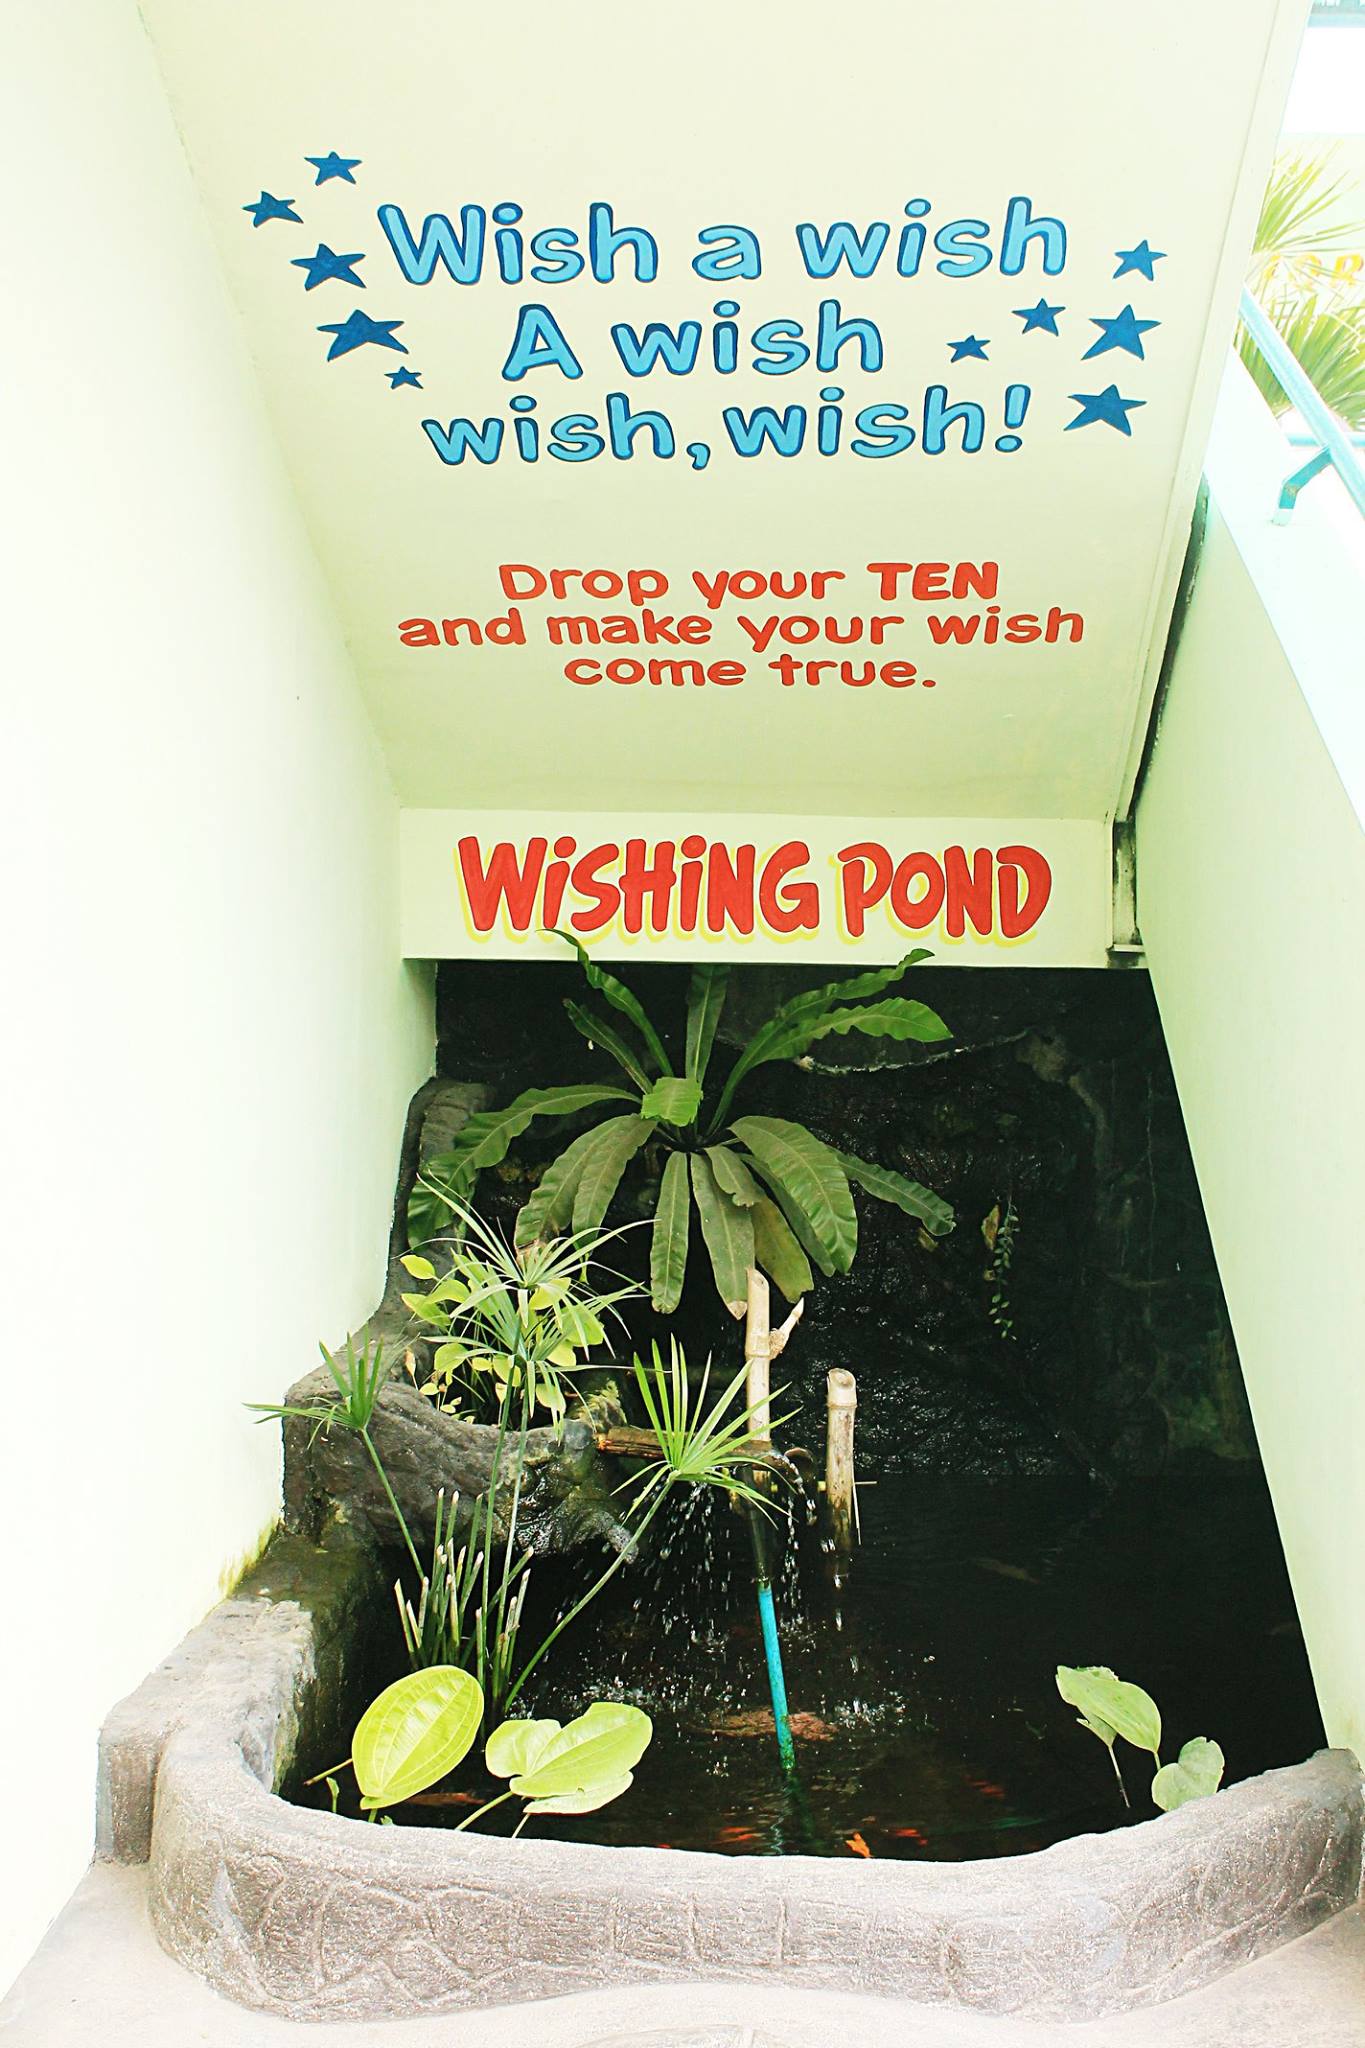 Wish a wish
A wish
wish, wish!
Drop your TEN
and make your wish
come true.
WiSHiNG POND